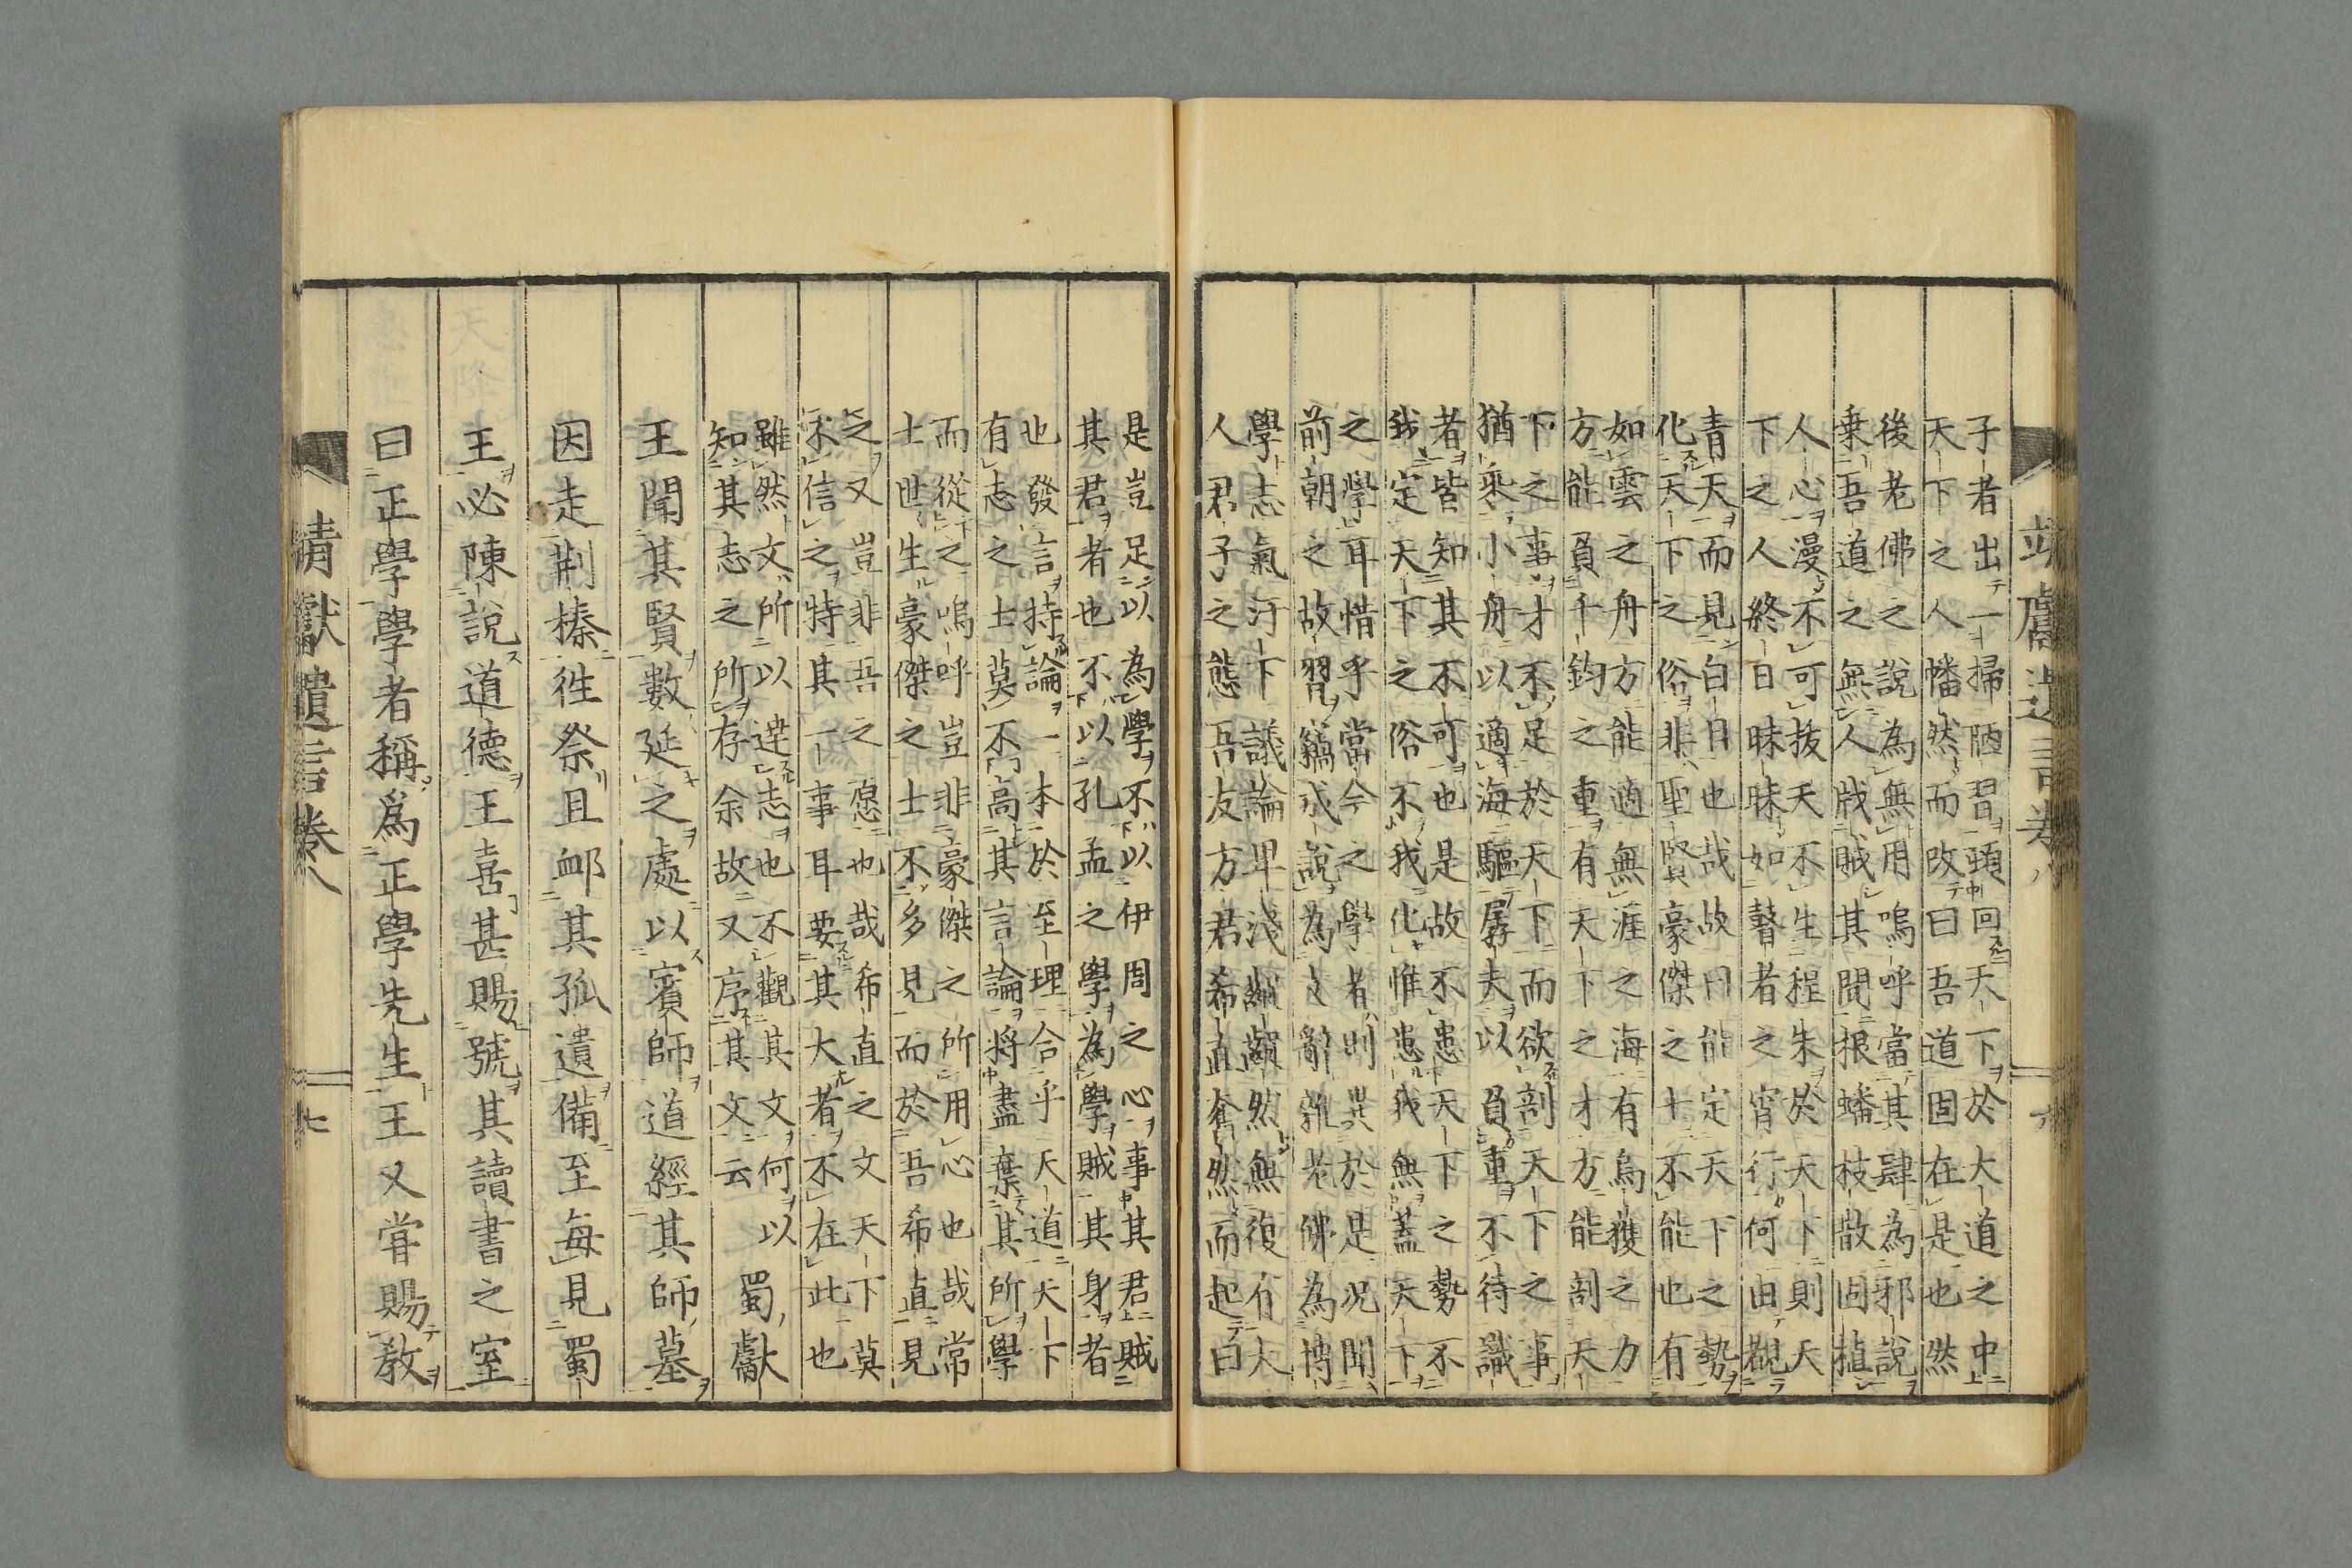 子者出一掃陋習頭回天下於大道之中
天下之人幡然而改曰吾道固在是也然
後老佛之說為無用嗚呼當其肆為邪說
乗吾道之無人戕賊其間根蟠枝散固植
人心漫不可拔天不生程朱於天下則天
下之人終日昧昧如瞽者之宵行何由覩
青天而見白日也哉故曰能定天下之勢
化天下之俗非聖賢豪傑之士不能也有
如雲之舟方能適無涯之海有烏獲之力
方能負千鈞之重有天下之才方能剖天
下之事才不足於天下而欲剖天下之事
猶乘小舟以適海驅孱夫以負重不待識
者皆知其不可也是故不患天下之勢不
我定天下之俗不我化惟患我無蓋天下
之學耳惜乎當今之學者則異於是況聞
前朝之故習竊成說為支辭雜老佛為博
學志氣汙下議論卑淺然無復有大
人君子之態吾友方君希直奮然而起曰
靖獻遺言卷八
是豈足以為學不以伊周之心事其君賊
其君者也不以孔孟之學為學賊其身者
也發言持論一本於至理合乎天道天下
有志之士莫不高其言論將盡棄其所學
而從之嗚呼豈非豪傑之所用心也哉常
士世生豪傑之士不多見而於吾希直見
之又豈非吾之愿也哉希直之文天下莫
不信之特其一事耳要其大者不在此也
雖然文所以達志也不觀其文何以
知其志之所存余故又序其文云
蜀獻
王聞其賢數延之處以賓師道經其師墓
因走荆榛徃祭且䘏其孤遺備至毎見蜀
王必陳說道德王喜甚賜號其讀書之室
曰正學學者稱爲正學先生王又甞賜敎
靖獻遺言卷八
七